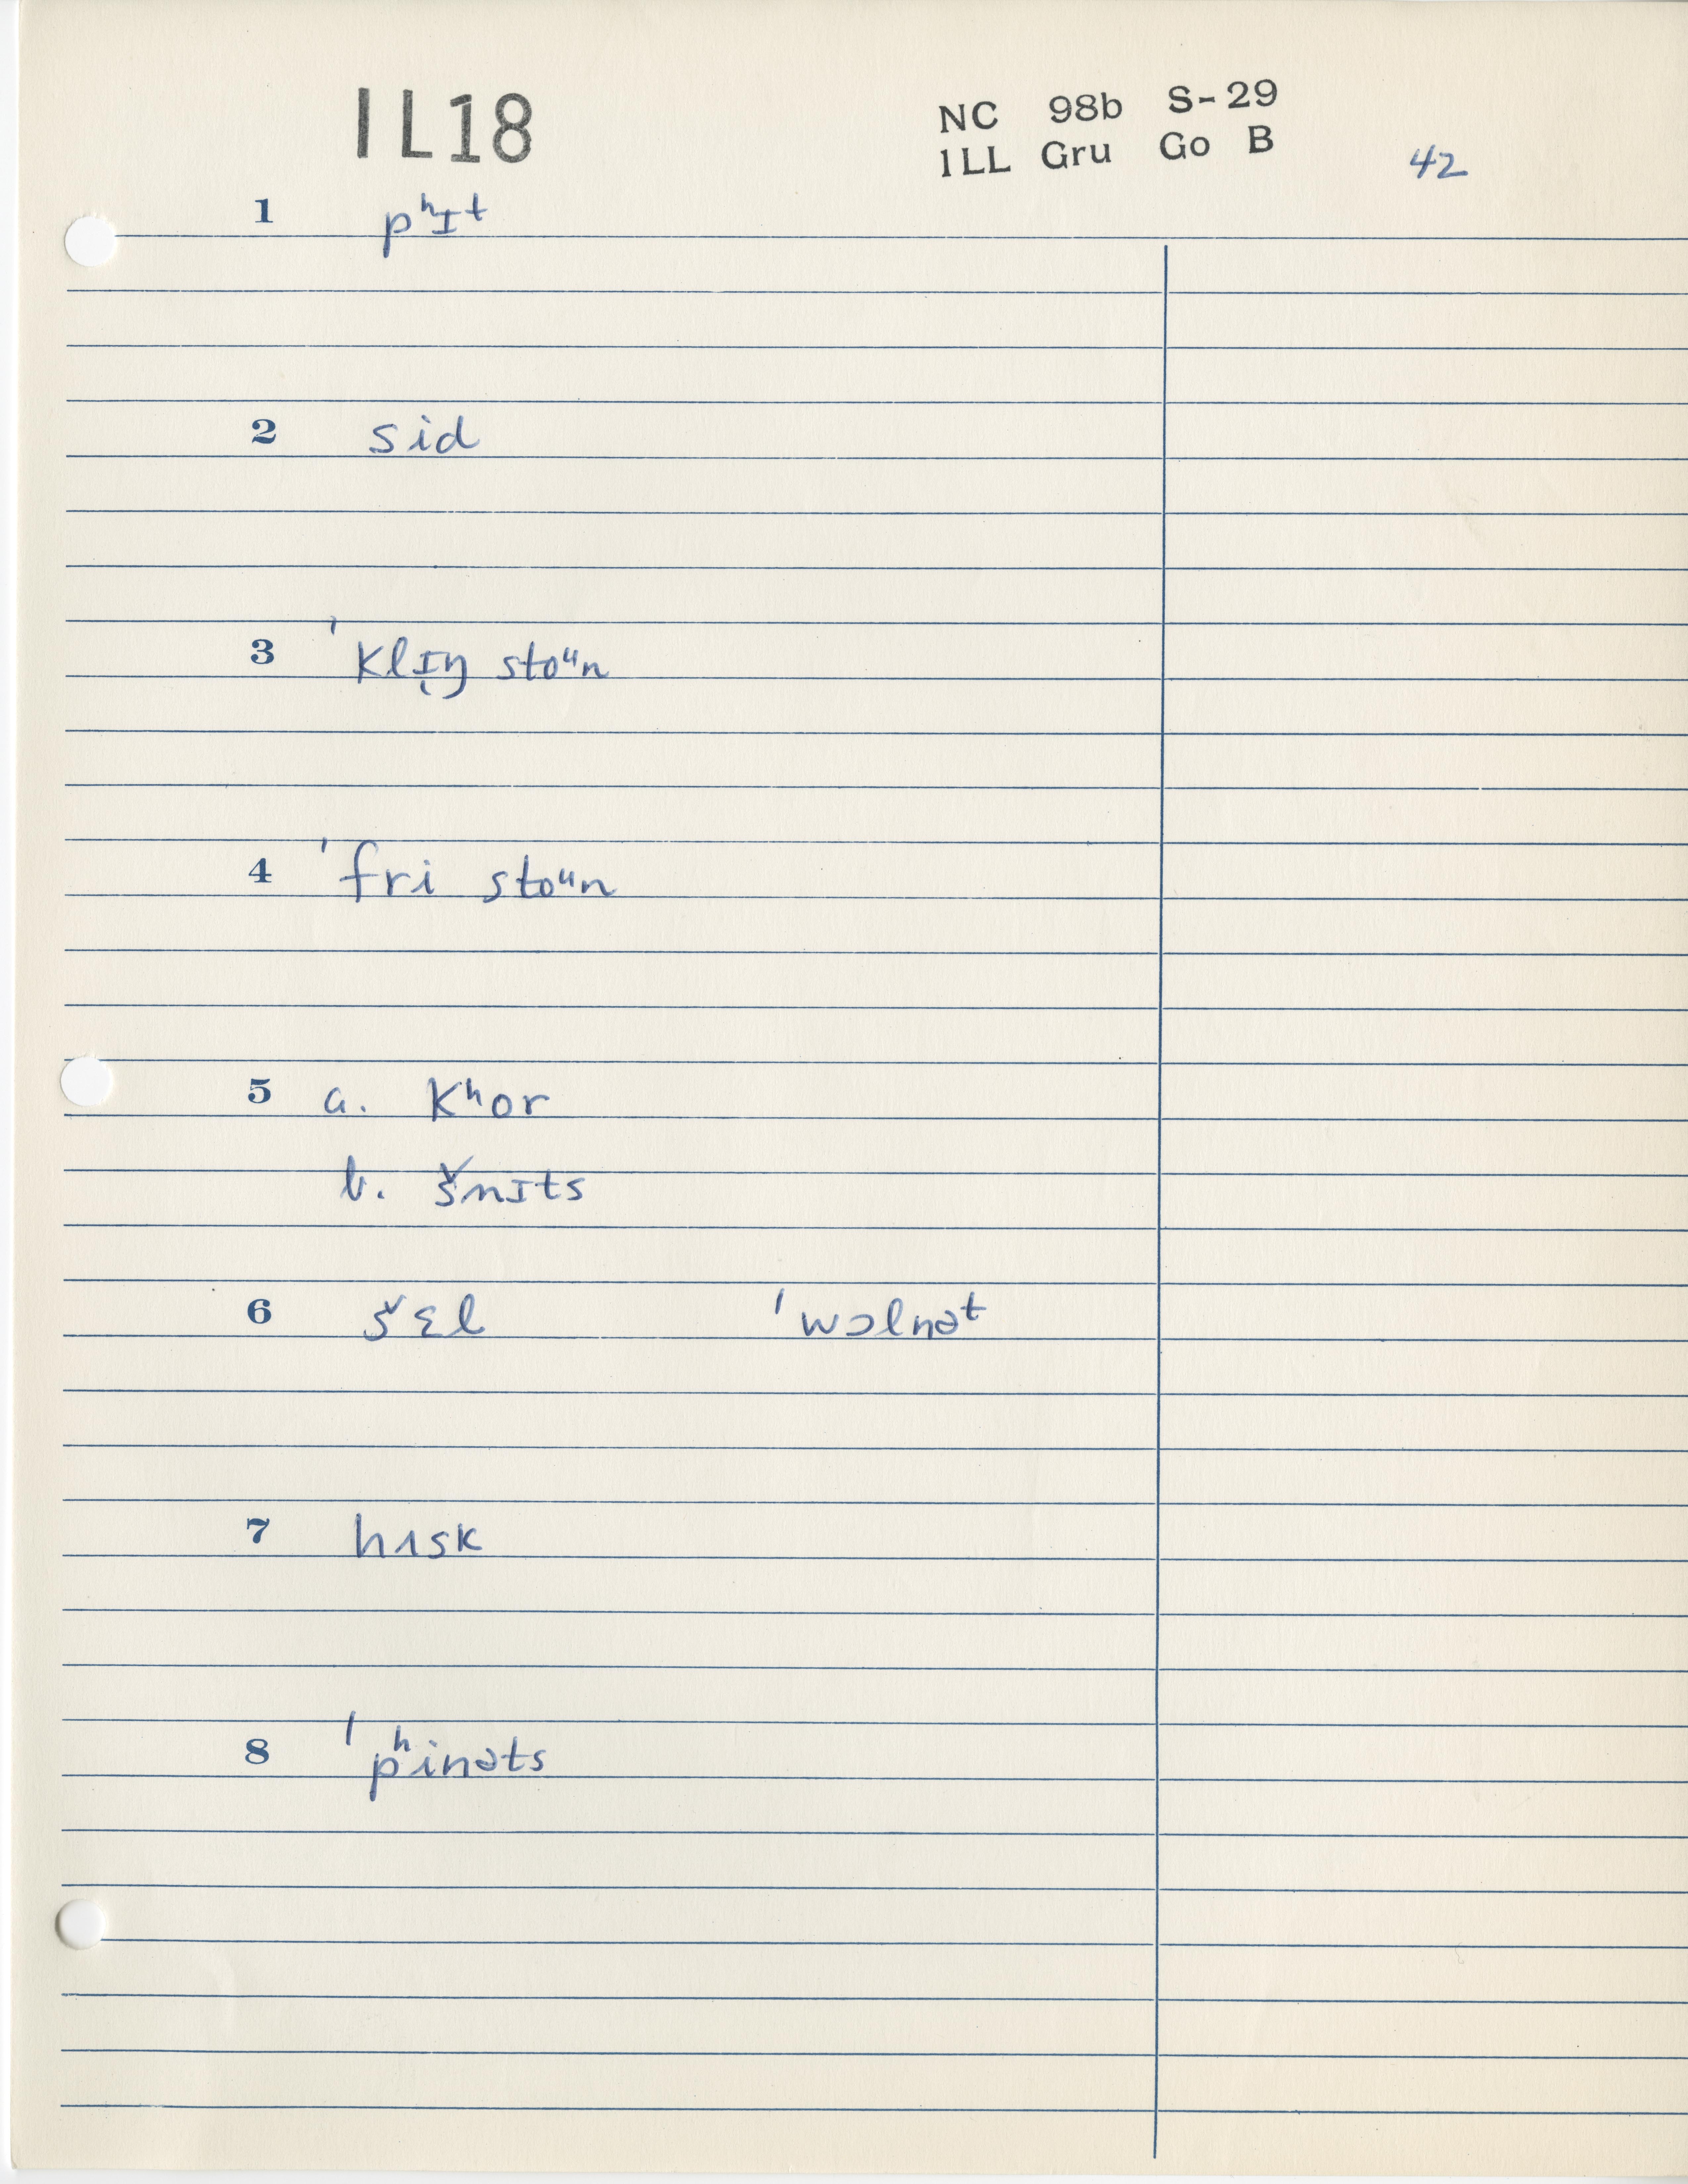 IL18
NC 98b S-29
1LL Gru Go B
42
1 pʰɪt
2 sid
3 ˈklɪ̜ŋ stoᵘn
4 ˈfri stoᵘn
5 a. kʰor
b. šnɪts
6 šɛl ˈwɔlnəᵗ
7 hɪsk
8 ˈpʰinəts